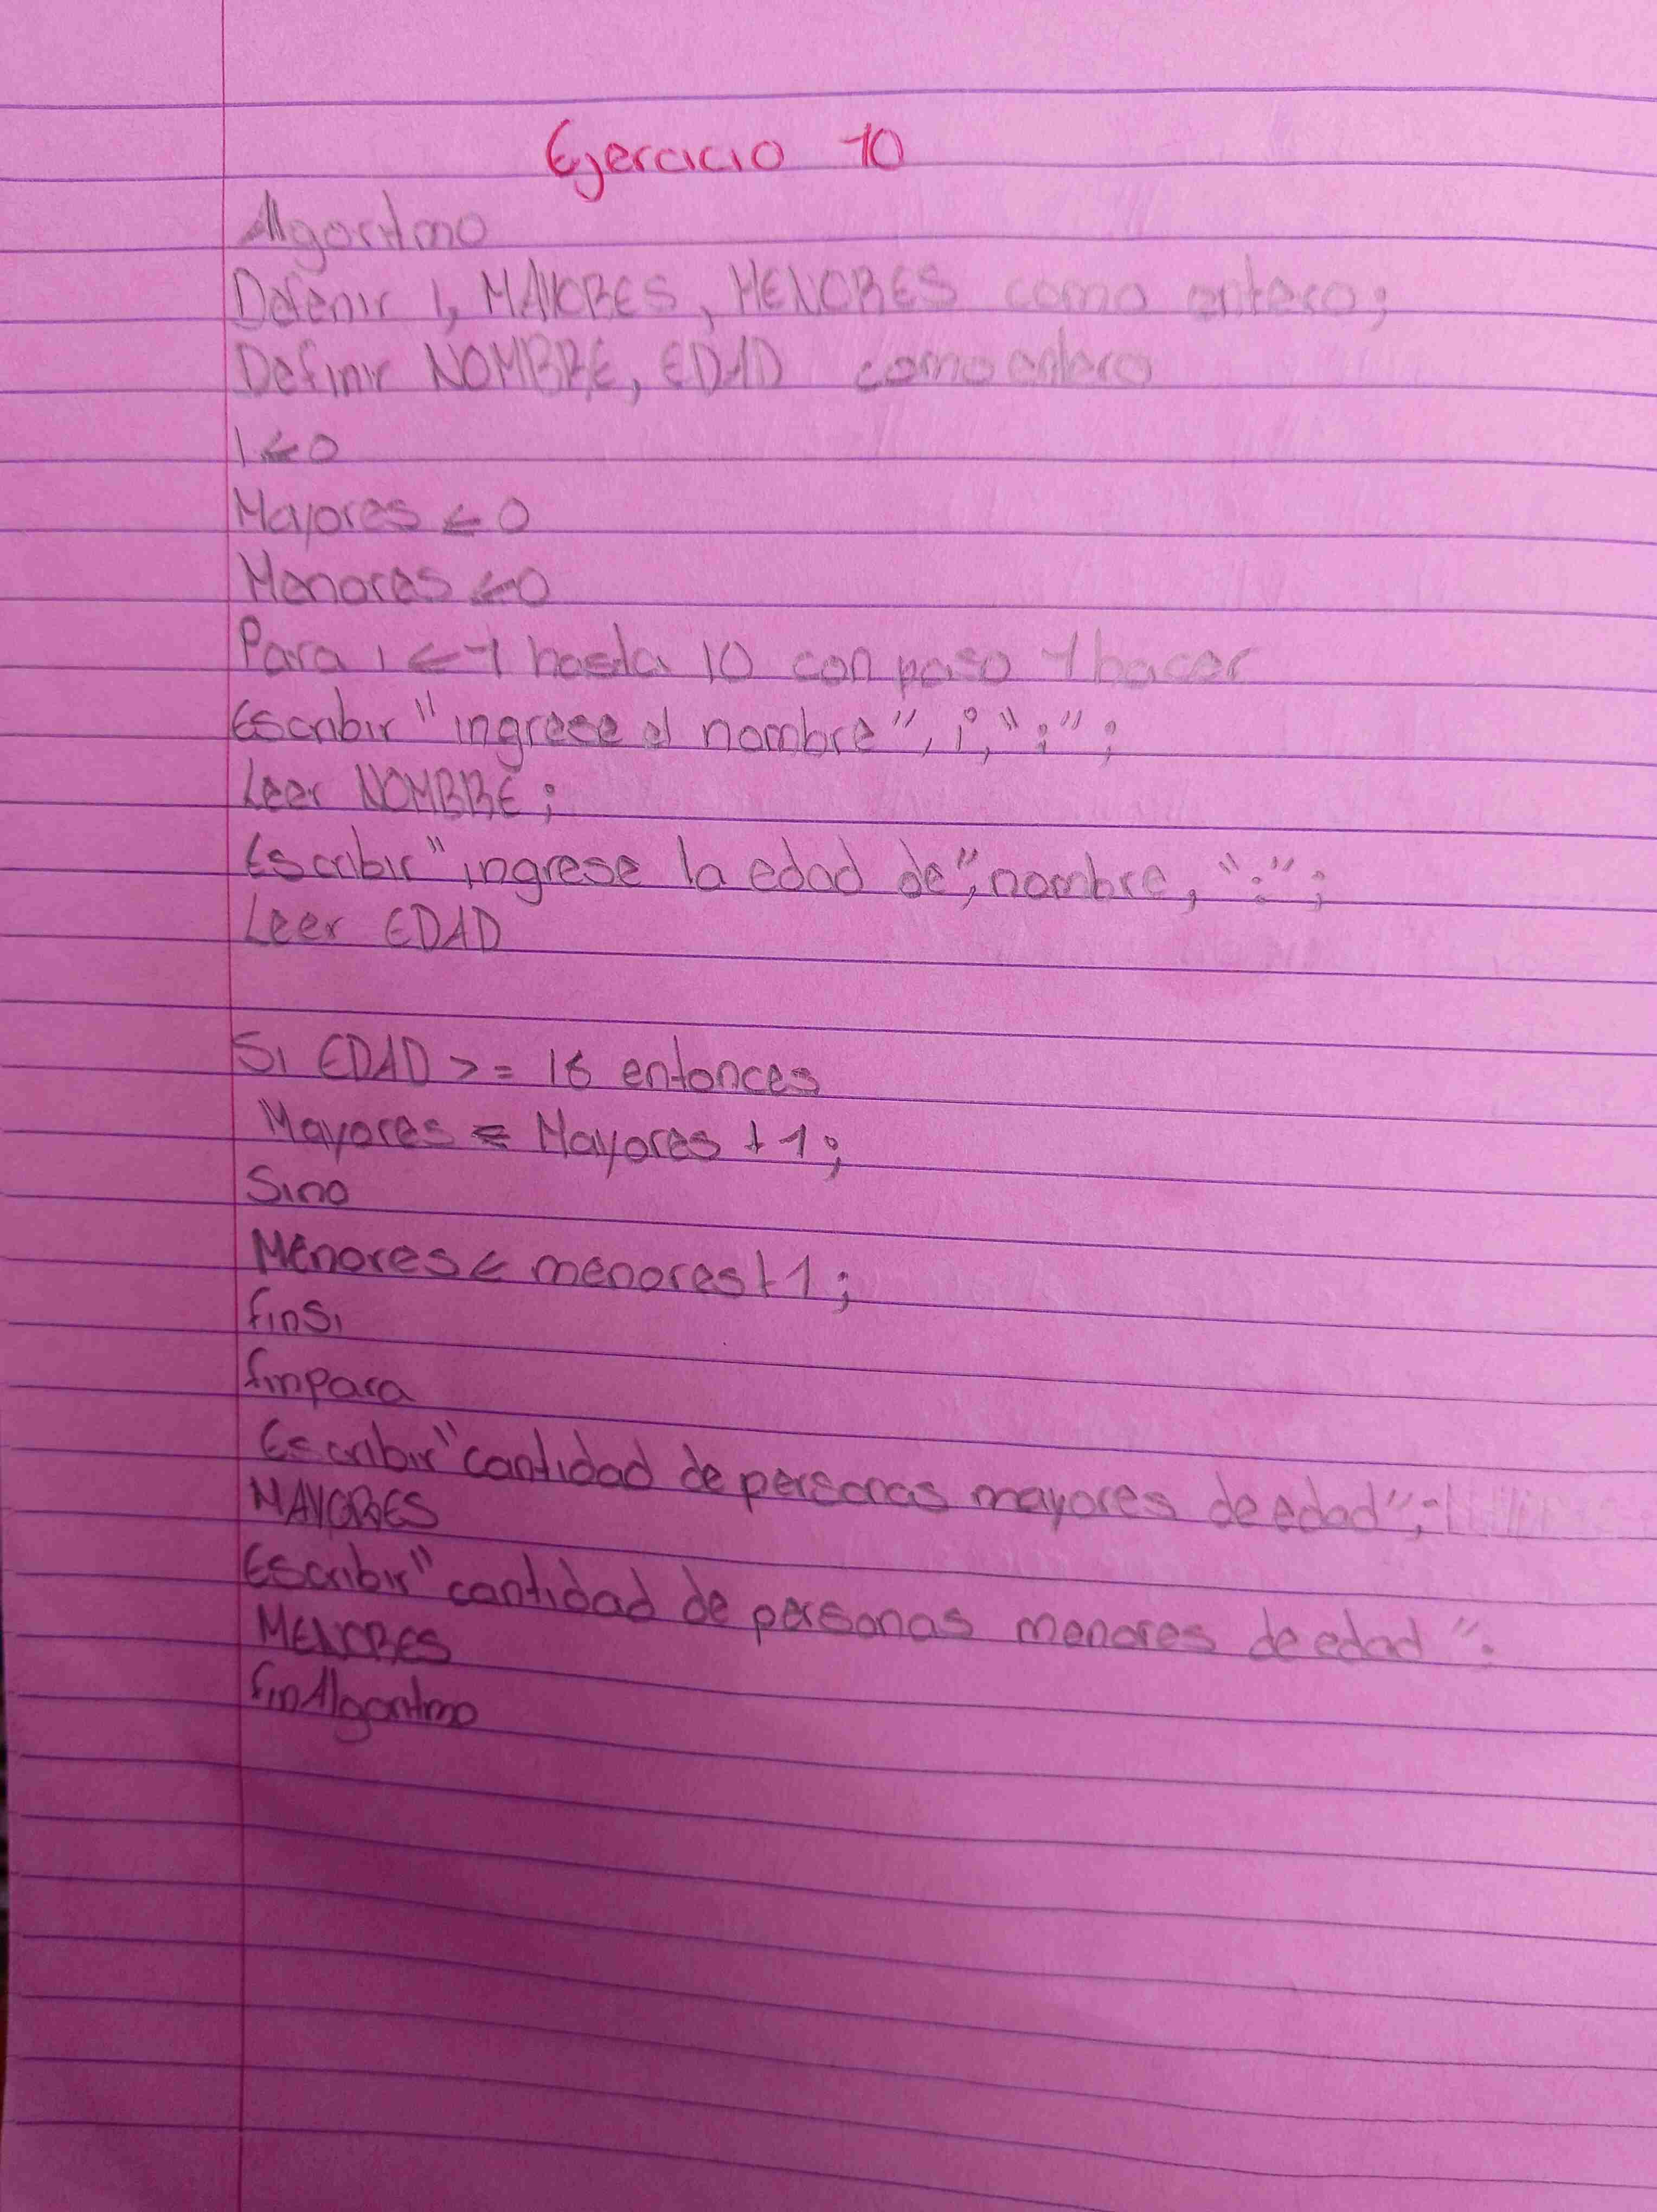 Ejercicio 10
Algoritmo
Defenir I, MAYORES, MENORES como entero;
Definir NOMBRE, EDAD como entero
I <- 0
Mayores <- 0
Menores <- 0
Para i <- 1 hasta 10 con paso 1 hacer
Escribir "ingrese el nombre", i, ":";
Leer NOMBRE;
Escribir "ingrese la edad de", nombre, ":";
Leer EDAD
Si EDAD >= 18 entonces
Mayores <- Mayores + 1;
Sino
Menores <- menores + 1;
finsi
finpara
Escribir "cantidad de personas mayores de edad";
MAYORES
Escribir "cantidad de personas menores de edad":
MENORES
finAlgoritmo